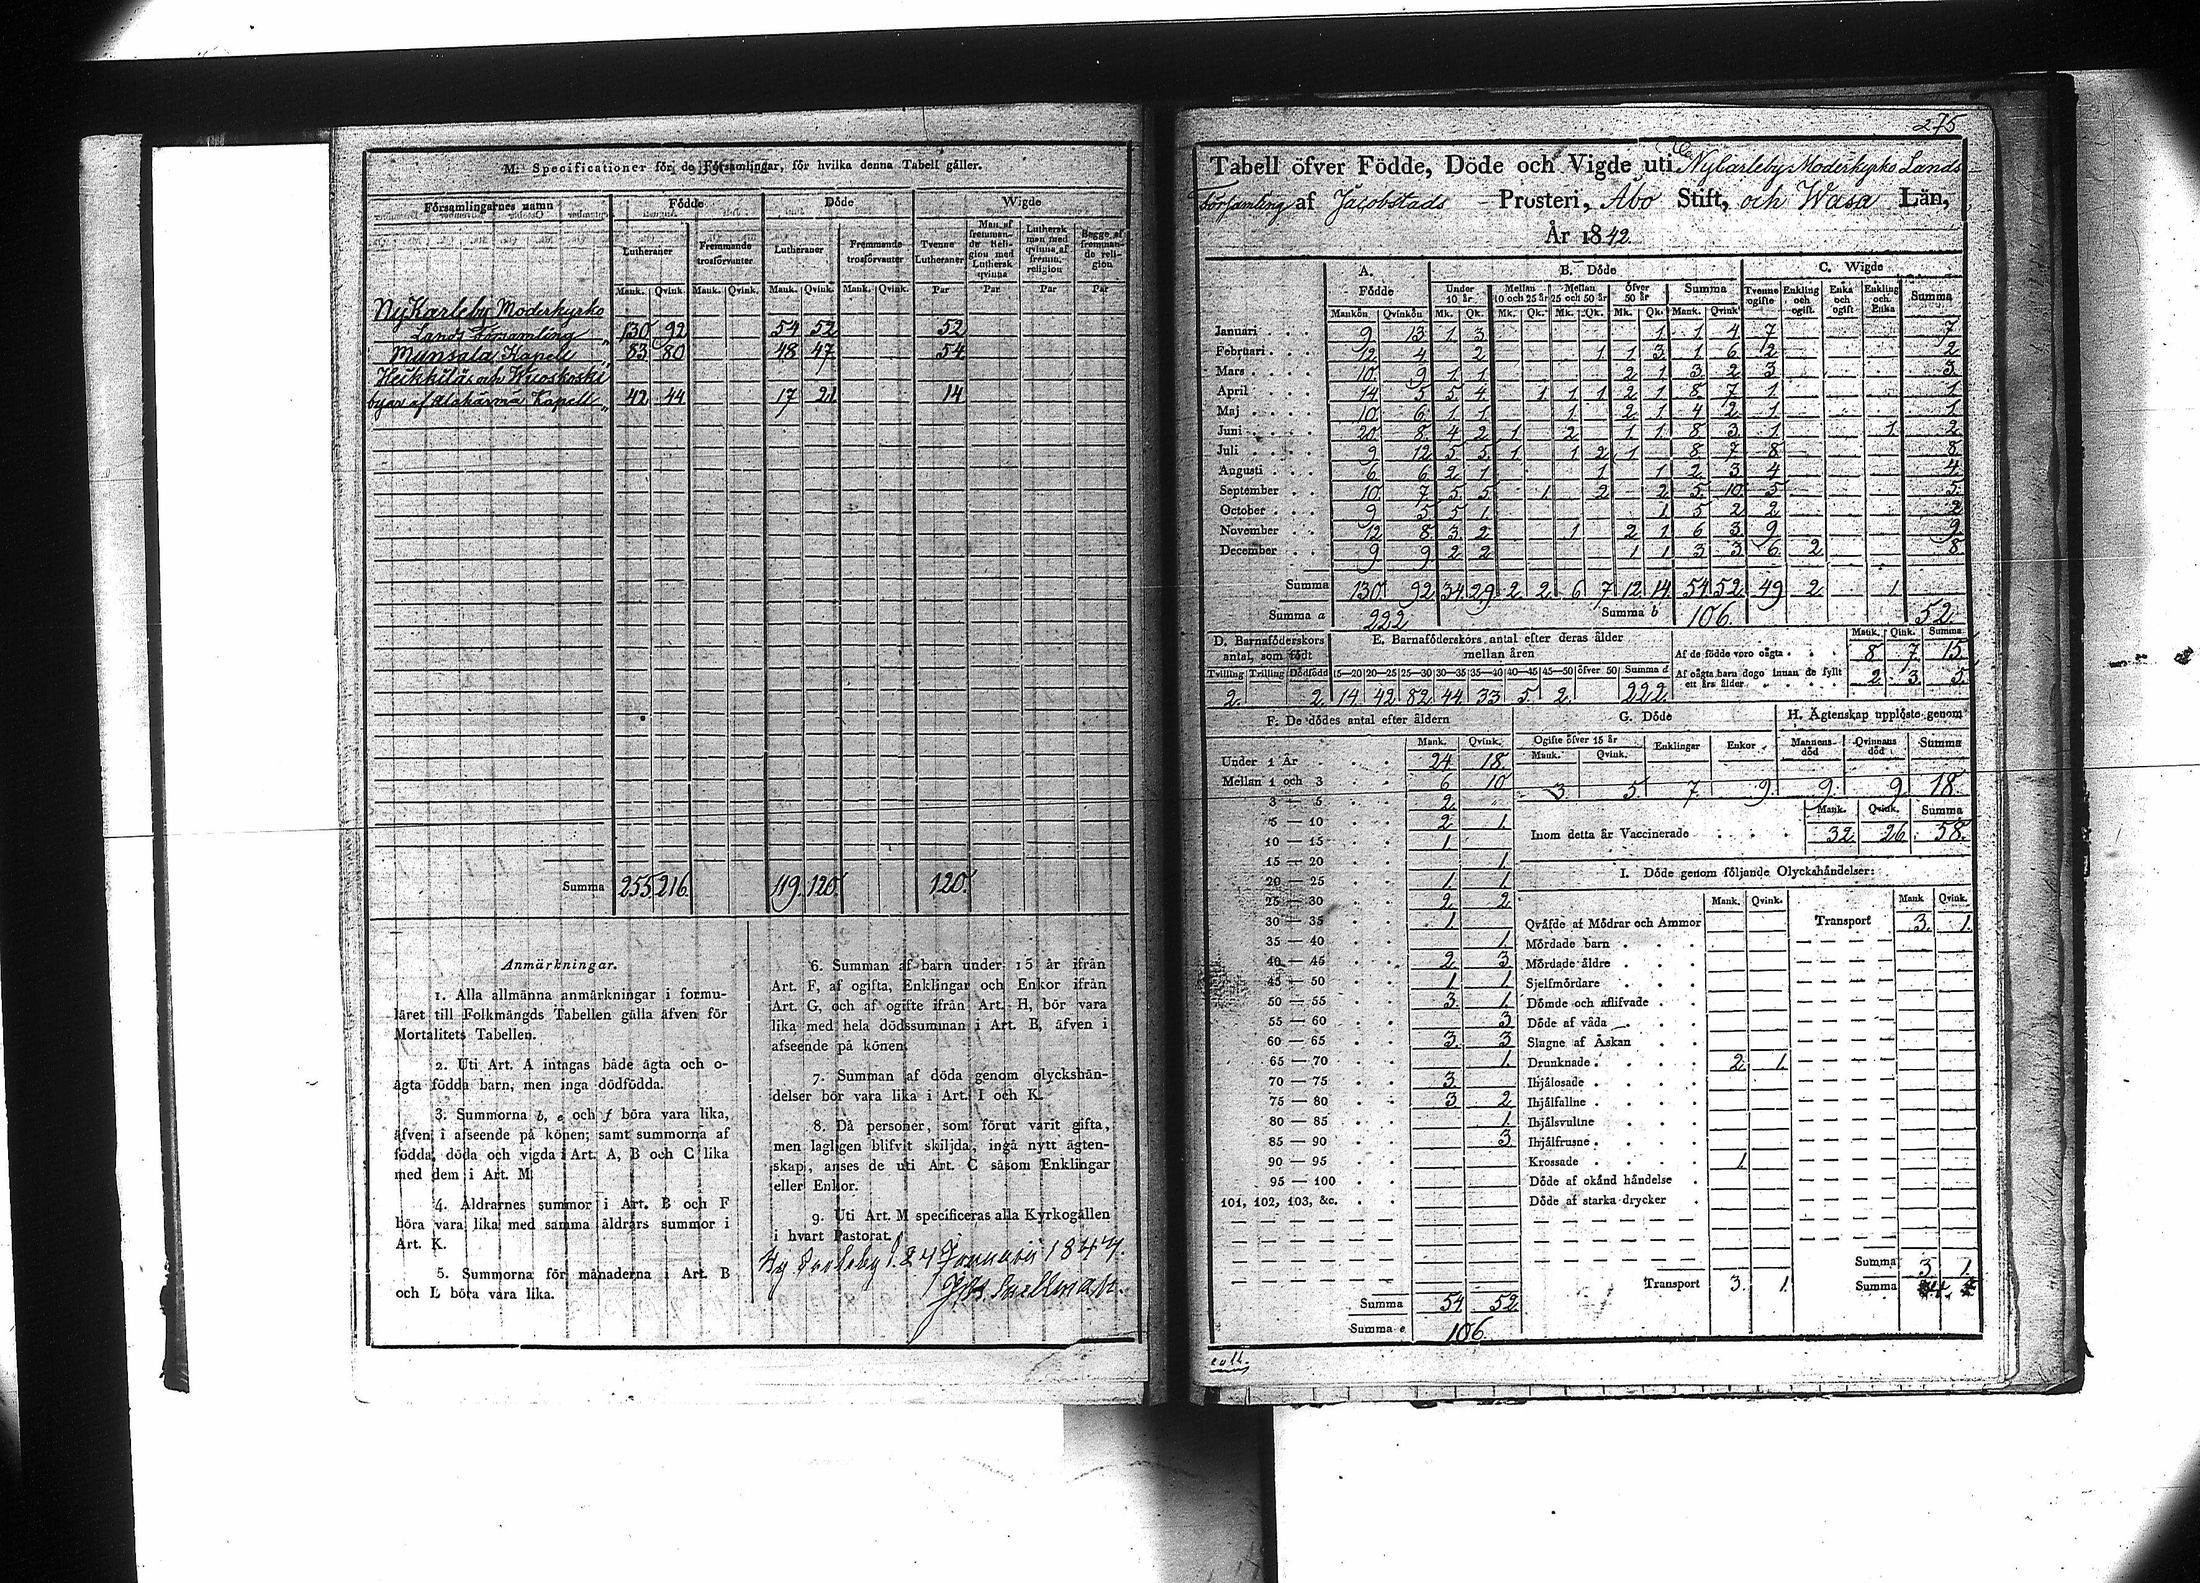 M. Specificationer för de Församlingar, för hvilka denna Tabell gäller.
Församlingarnes namn Födde Döde Wigde
Lutheraner Fremmande trosförvanter Lutheraner Fremmande trosförvanter Tvenne Lutheraner Man af fremmande Religion med Luthersk qvinna Luthersk man med qvinna af fremm. religion Begge af fremmande religion
Mank. Qvink. Mank. Qvink. Mank. Qvink. Mank. Qvink. Par Par Par Par
NyKarleby Moderkyrko
Lands Församling 130 92 54 52 52
Munsala Kapell 83 80 48 47 54
Heikkilä och Wuoskoski
byar af Alahärmä Kapell 42 44 17 21 14
Summa 255 216 119. 120. 120.
Anmärkningar.
1. Alla allmänna anmärkningar i formu-
läret till Folkmängds Tabellen gälla äfven för
Mortalitets Tabellen.
2. Uti Art. A intagas både ägta och o-
ägta födda barn, men inga dödfödda.
3. Summorna b, e och f böra vara lika,
äfven i afseende på könen; samt summorna af
födda, döda och vigda i Art. A, B och C lika
med dem i Art. M.
4. Åldrarnes summor i Art. B och F
böra vara lika med samma åldrars summor i
Art. K.
5. Summorna för månaderna i Art. B
och L böra vara lika.
6. Summan af barn under 15 år ifrån
Art. F, af ogifta, Enklingar och Enkor ifrån
Art. G, och af ogifte ifrån Art. H, bör vara
lika med hela dödssumman i Art. B, äfven i
afseende på könen.
7. Summan af döda genom olyckshän-
delser bör vara lika i Art. I och K.
8. Då personer, som förut varit gifta,
men lagligen blifvit skiljda, ingå nytt ägten-
skap, anses de uti Art. C såsom Enklingar
eller Enkor.
9. Uti Art. M specificeras alla Kyrkogällen
i hvart Pastorat.
Januari
275
Tabell öfver Födde, Döde och Vigde uti NyCarleby Moderkyrko Lands
Församling af Jacobstads Prosteri, Åbo Stift, och Wasa Län,
År 1842.
A. Födde B. Döde C. Wigde
Under 10 år Mellan 10 och 25 år Mellan 25 och 50 år Öfver 50 år Summa Tvenne ogifte Enkling och ogift Enka och ogift Enkling och Enka Summa
Mankön Qvinkön Mk. Qk. Mk. Qk. Mk. Qk. Mk. Qk. Mank. Qvink.
Januari 9 13 1 3 1 1 4 7 7
Februari 12 4 2 1 1 3 1 6 2 2
Mars 10 9 1 1 2 1 3 2 3 3
April 14 5 5 4 1 1 1 2 1 8 7 1 1
Maj 10 6 1 1 1 2 1 4 2 1 1
Juni 20 8 4 2 1 2 1 1 8 3 1 1 2
Juli 9 12 5 5 1 1 2 1 8 7 8 8
Augusti 6 6 2 1 1 1 2 3 4 4
September 10 7 5 5 1 2 2 5 10 5 5
October 9 5 5 1 1 5 2 2 2
November 12 8 3 2 1 2 1 6 3 9 9
December 9 9 2 2 1 1 3 3 6 2 8
Summa 130 92 34 29 2 2 6 7 12 14 54 52 49 2 1
Summa a 222 Summa b 106. 52.
D. Barnaföderskors antal, som födt
Tvilling Trilling Dödfödd
2. 2.
E. Barnaföderskors antal efter deras ålder mellan åren
15—20 20—25 25—30 30—35 35—40 40—45 45—50 öfver 50 Summa d
14 42 82 44 33 5 2 222
Mank. Qink. Summa
Af de födde voro oägta 8 7 15
Af oägta barn dogo innan de fyllt ett års ålder 2 3 5
F. De dödes antal efter åldern
Mank. Qvink.
Under 1 År 24 18
Mellan 1 och 3 6 10
3 — 5 2
5 — 10 2 1
10 — 15 1
15 — 20 1
20 — 25 1 1
25 — 30 2 2
30 — 35 1
35 — 40 1
40 — 45 2 3
45 — 50 1 1
50 — 55 3 1
55 — 60 3
60 — 65 3 3
65 — 70 1
70 — 75 3
75 — 80 3 2
80 — 85 1
85 — 90 3
90 — 95
95 — 100
101, 102, 103, &c.
Summa 54 52
Summa e 106.
G. Döde
Ogifte öfver 15 år Enklingar Enkor
Mank. Qvink.
3 5 7 9
H. Ägtenskap upplöste genom
Mannens död Qvinnans död Summa
9 9 18
Mank. Qvink. Summa
Inom detta år Vaccinerade 32 26 58.
I. Döde genom följande Olyckshändelser:
Mank. Qvink. Mank Qvink.
Qväfde af Mödrar och Ammor Transport 3. 1.
Mördade barn
Mördade äldre
Sjelfmördare
Dömde och aflifvade
Döde af våda
Slagne af Åskan
Drunknade 2 1
Ihjälosade
Ihjälfallne
Ihjälsvultne
Ihjälfrusne
Krossade 1
Döde af okänd händelse
Döde af starka drycker
Summa 3 1.
Transport 3. 1. Summa
coll.